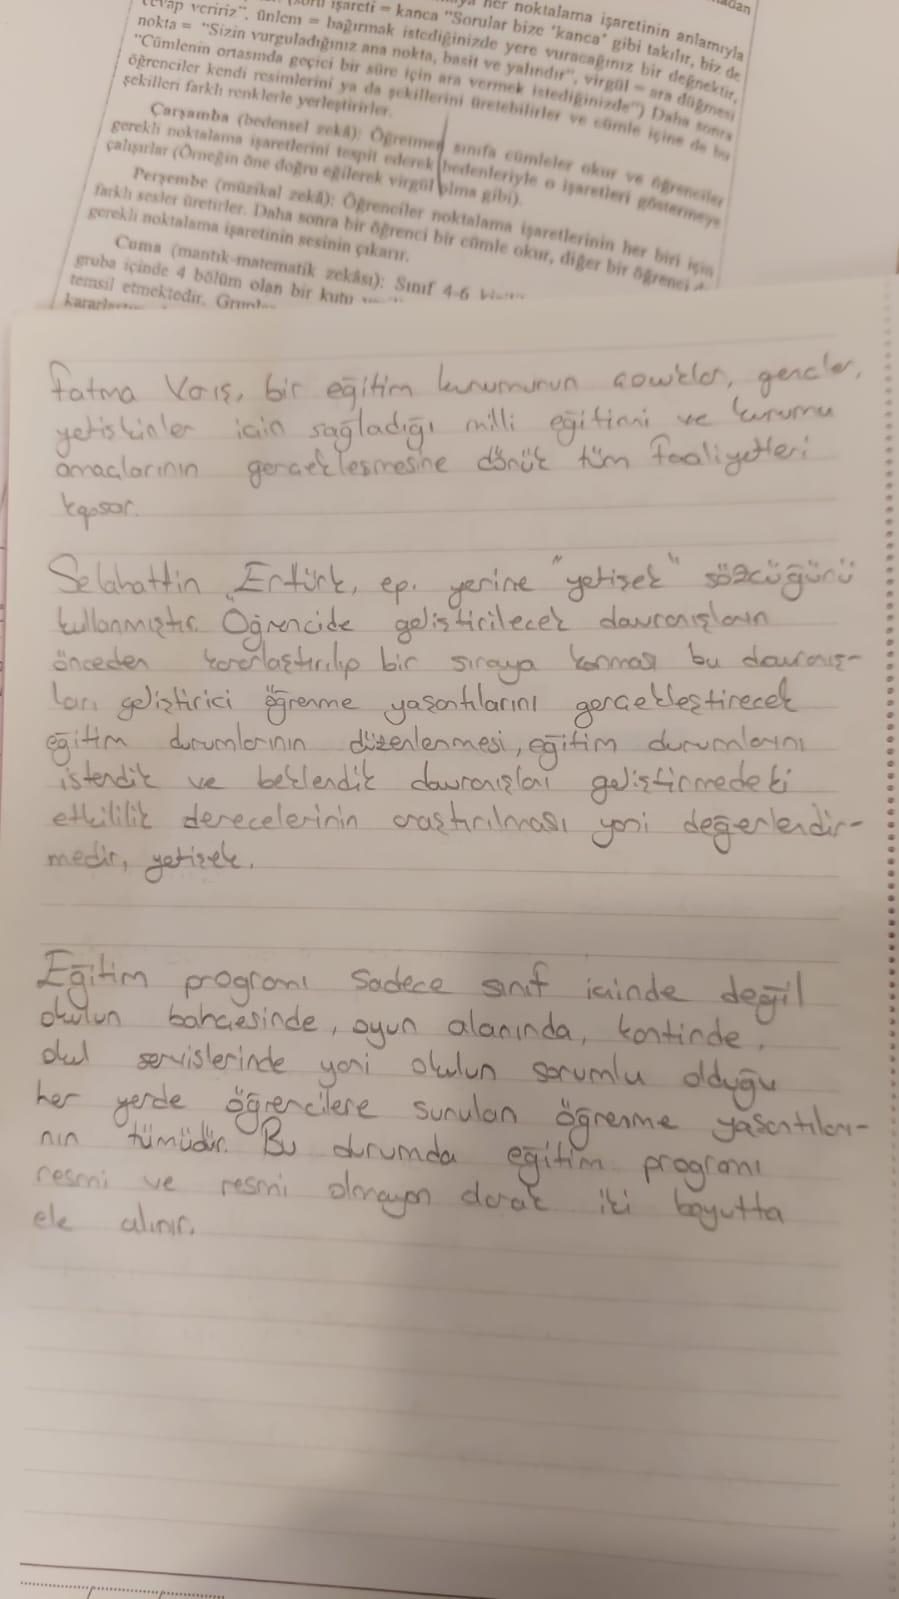 her noktalama işaretinin anlamıyla
işareti = kanca "Sorular bize 'kanca' gibi takılır, biz de
cevap veririz", ünlem = bağırmak istediğinizde yere vuracağınız bir değnektir,
nokta = "Sizin vurguladığınız ana nokta, basit ve yalındır", virgül = ara düğmesi
"Cümlenin ortasında geçici bir süre için ara vermek istediğinizde") Daha sonra
öğrenciler kendi resimlerini ya da şekillerini üretebilirler ve cümle içine de bu
şekilleri farklı renklerle yerleştirirler.
Çarşamba (bedensel zekâ): Öğretmen sınıfa cümleler okur ve öğrenciler
gerekli noktalama işaretlerini tespit ederek bedenleriyle o işaretleri göstermeye
çalışırlar (Örneğin öne doğru eğilerek virgül olma gibi).
Perşembe (müzikal zekâ): Öğrenciler noktalama işaretlerinin her biri için
farklı sesler üretirler. Daha sonra bir öğrenci bir cümle okur, diğer bir öğrenci
gerekli noktalama işaretinin sesinin çıkarır.
Cuma (mantık-matematik zekâsı): Sınıf 4-6
gruba içinde 4 bölüm olan bir kutu
temsil etmektedir.
Fatma Varış, bir eğitim kurumunun çocuklar, gençler,
yetişkinler için sağladığı milli eğitimi ve kurumu
amaçlarının gerçekleşmesine dönük tüm faaliyetleri
kapsar.
Selahattin Ertürk, ep. yerine "yetişek" sözcüğünü
kullanmıştır. "Öğrencide geliştirilecek davranışların
önceden kararlaştırılıp bir sıraya konması bu davranış-
ları geliştirici öğrenme yaşantılarını gerçekleştirecek
eğitim durumlarının düzenlenmesi, eğitim durumlarını
istendik ve beklendik davranışları geliştirmedeki
etkililik derecelerinin araştırılması yani değerlendir-
medir, yetişek.
Eğitim programı sadece sınıf içinde değil
okulun bahçesinde, oyun alanında, kantinde,
okul servislerinde yani okulun sorumlu olduğu
her yerde öğrencilere sunulan öğrenme yaşantıları-
nın tümüdür. Bu durumda eğitim programı
resmi ve resmi olmayan olarak iki boyutta
ele alınır.